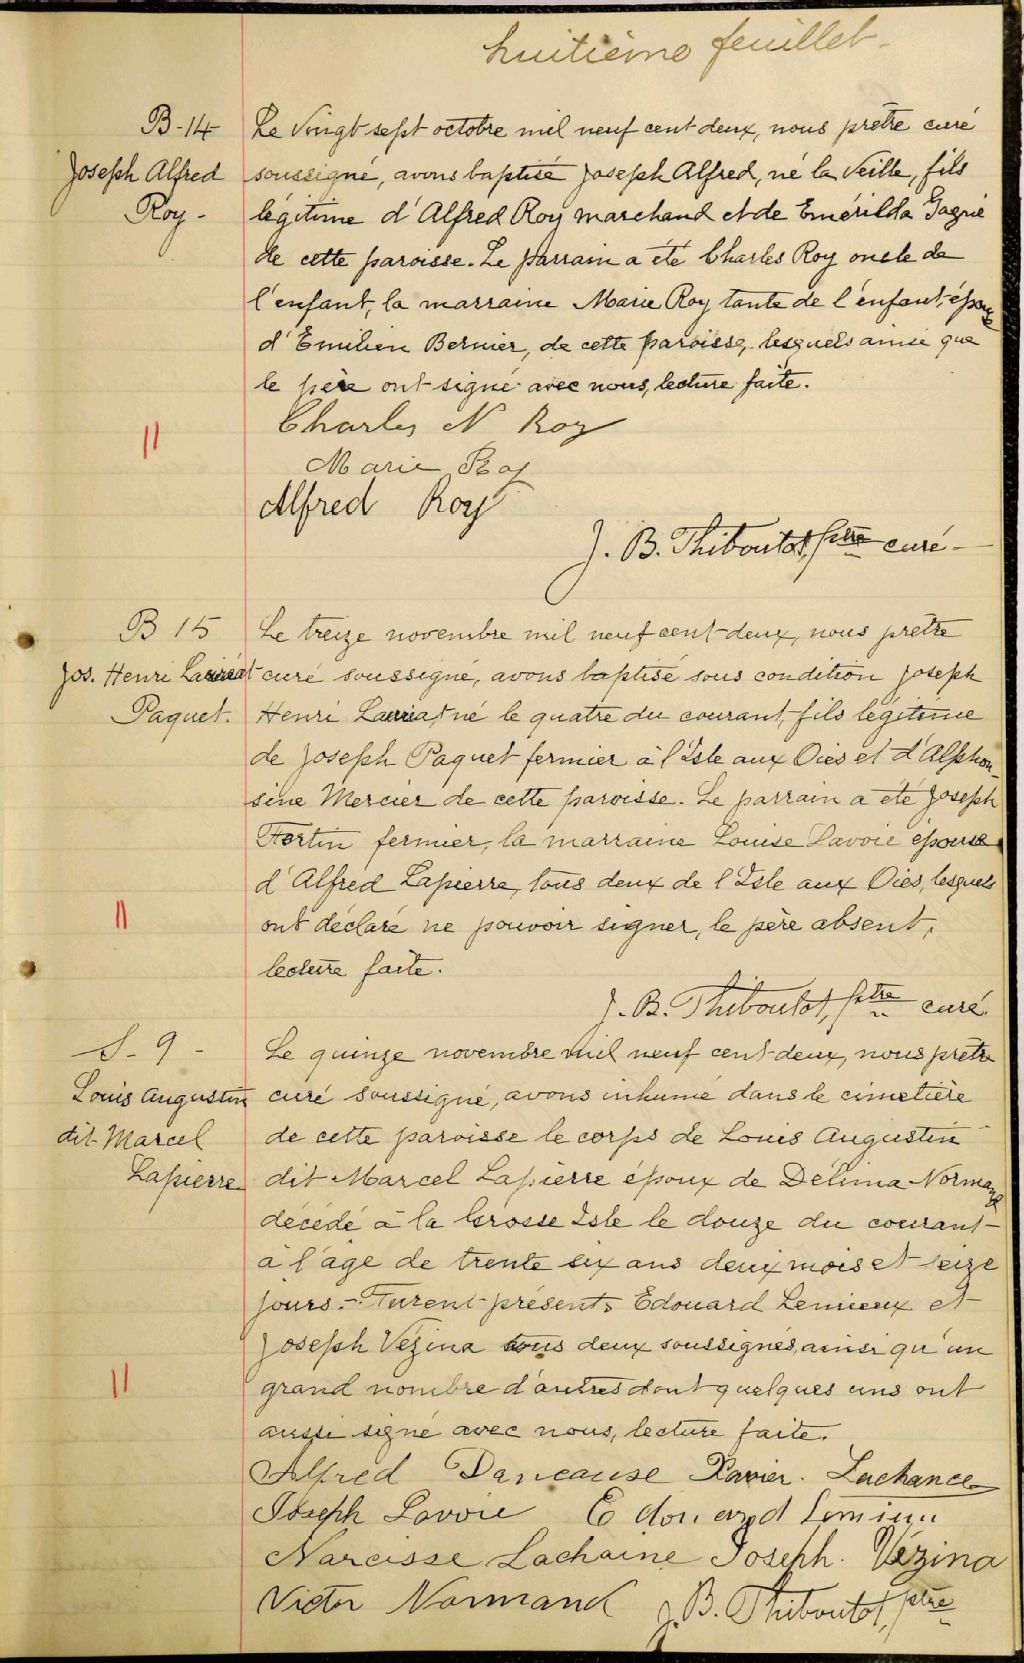 huitième feuillet.
B-14
Joseph Alfred
Roy -
Le vingt sept octobre mil neuf cent deux, nous prêtre curé
soussigné, avons baptisé Joseph Alfred, né la veille, fils
légitime d'Alfred Roy marchand et de Emérilda Gagné
de cette paroisse. Le parrain a été Charles Roy oncle de
l'enfant, la marraine Marie Roy tante de l'enfant, épouse
d'Emilien Bernier, de cette paroisse, lesquels ainsi que
le père ont signé avec nous, lecture faite.
Charles N Roy
Marie Roy
Alfred Roy
J. B. Thiboutot, ptre curé -
B 15
Jos. Henri Lauréat
Paquet.
Le treize novembre mil neuf cent deux, nous prêtre
curé soussigné, avons baptisé sous condition Joseph
Henri né le quatre du courant, fils légitime
de Joseph Paquet fermier à l'Isle aux Oies et d'Alphon-
sine Mercier de cette paroisse. Le parrain a été Joseph
Fortin fermier, la marraine Louise Lavoie épouse
d'Alfred Lapierre, tous deux de l'Isle aux Oies, lesquels
ont déclaré ne pouvoir signer, le père absent,
lecture faite.
J. B. Thiboutot, ptre curé.
S. 9 -
Louis Augustin
dit Marcel
Lapierre
Le quinze novembre mil neuf cent deux, nous prêtre
curé soussigné, avons inhumé dans le cimetière
de cette paroisse le corps de Louis Augustin
dit Marcel Lapierre époux de Délima Normand
décédé à la Grosse Isle le douze du courant
à l'âge de trente six ans deux mois et seize
jours. - Furent présents Edouard Lemieux et
Joseph Vézina tous deux soussignés, ainsi qu'un
grand nombre d'autres dont quelques uns ont
aussi signé avec nous, lecture faite.
Alfred Dancause Xavier. Lachance
Joseph Lavoie Edouard Lemieu
Narcisse Lachaine Joseph. Vézina
Victor Normand J. B. Thiboutot, ptre